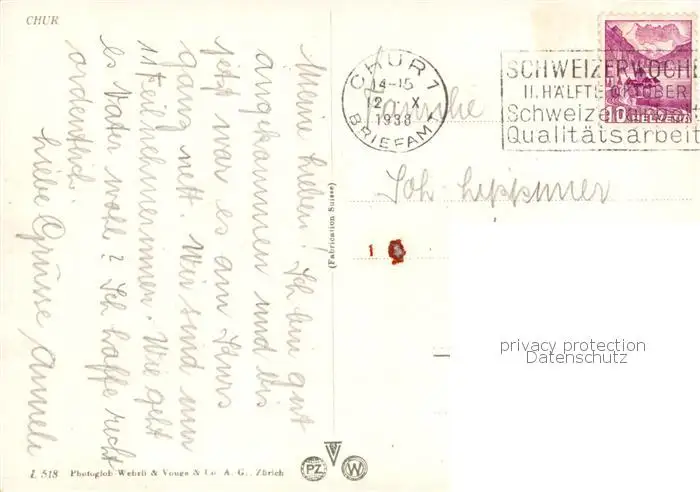 CHUR
Meine Lieben! Ich bin gut
angekommen und bis
jetzt war es am Kurs
ganz nett. Wir sind nur
11 Teilnehmerinnen. Wie geht
es Vater wohl? Ich hoffe recht
ordentlich.
Liebe Grüsse Anneli
L 518 Photoglob-Wehrli & Vouga & Co. A. G., Zürich
(Fabrication Suisse)
PZ W
CHUR 1
14-15
12 X
1938
BRIEFAMT
SCHWEIZERWOCHE
II. HÄLFTE OKTOBER
Schweizer
Qualitätsarbeit
10 HELVETIA
Familie
Joh.
1
privacy protection
Datenschutz